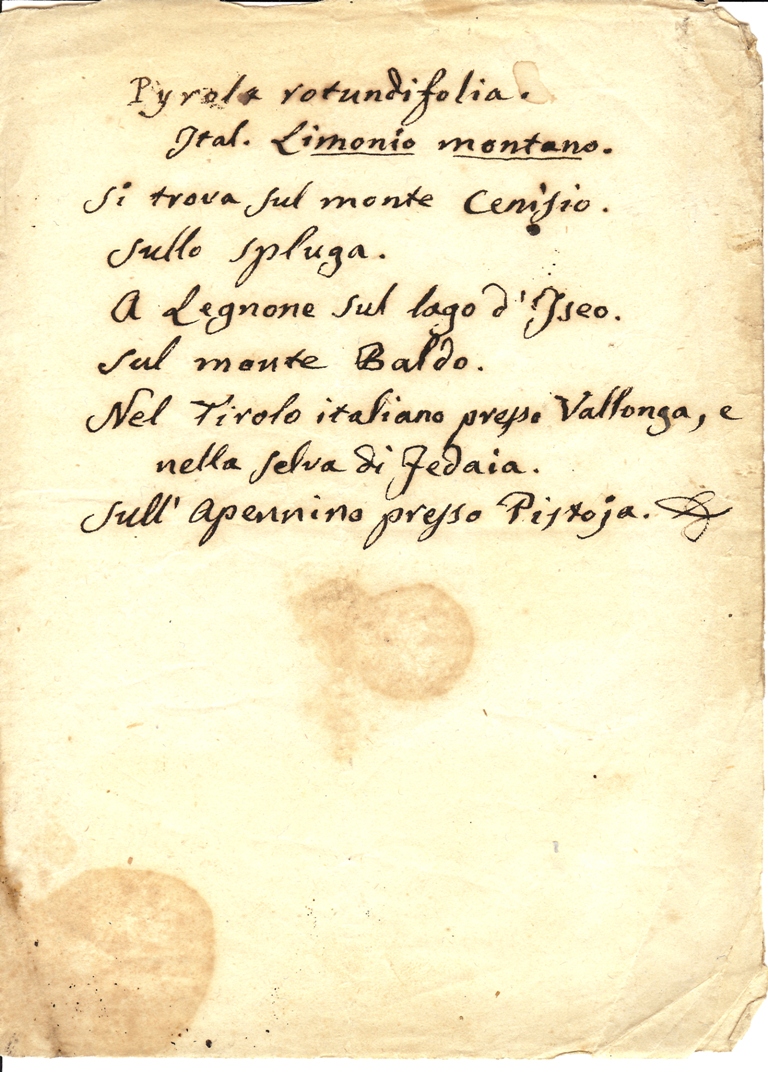 Pyrola rotundifolia.
Ital. Limonio montano.
Si trova sul monte Cenisio.
Sullo Spluga.
A Legnone sul lago d'Iseo.
Sul monte Baldo.
Nel Tirolo italiano presso Vallonga, e
nella selva di Fedaia.
Sull' Apennino presso Pistoja.